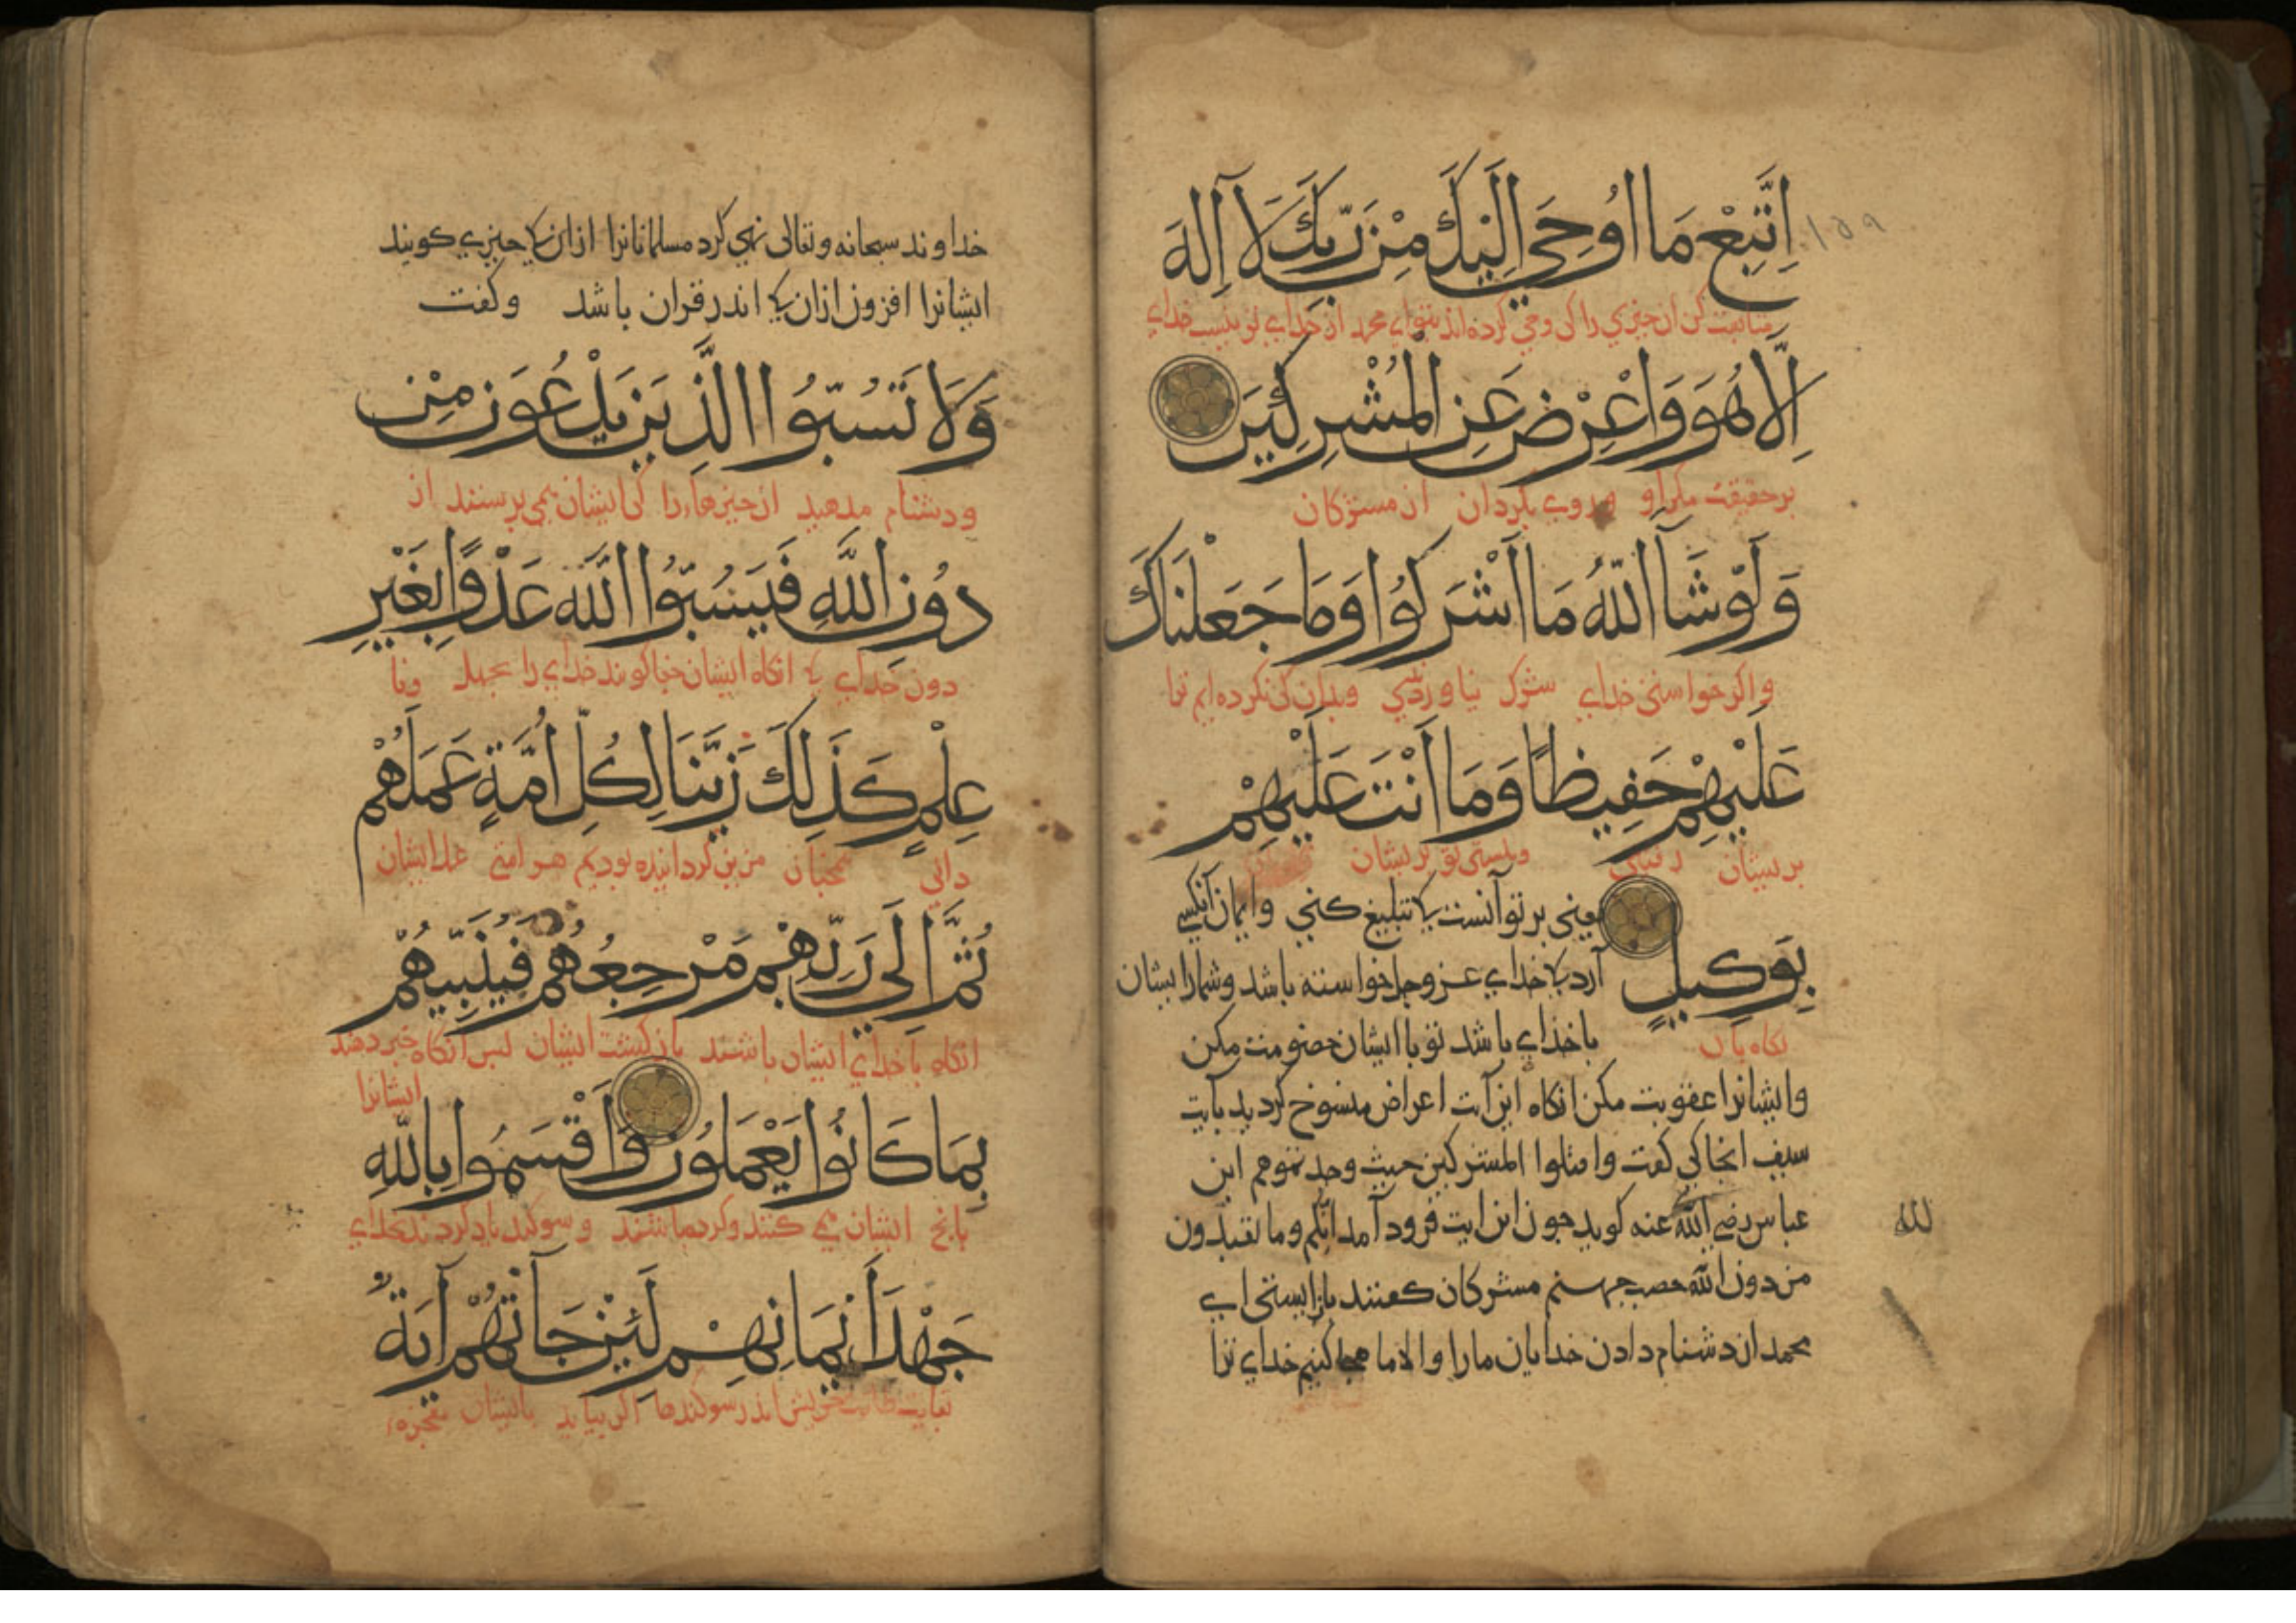 اِتَّبِعْ مَا اُوحِيَ اِلَيْكَ مِنْ رَبِّكَ لَآ اِلَهَ
١٥٩
متابعت کن ان جیزي را کی وحی کرده اند بتو اي محمد از خداي تو نیست خداي
اِلَّا هُوَ وَاَعْرِضْ عَنِ الْمُشْرِكِيْنَ
بر حقیقت مکر او و روی بکردان از مشرکان
وَلَوْ شَآءَ اللّٰهُ مَا اَشْرَكُوْا وَمَا جَعَلْنَاكَ
واکر خواستی خداي شرک نیاوردندي وبدان کی نکرده ایم ترا
عَلَيْهِمْ حَفِيظًا وَمَا اَنْتَ عَلَيْهِمْ
بریشان ونیستی تو بریشان
یعنی بر تو آنست کی تبلیغ کنی وایمان آنکسي
بِوَكِيلٍ آرد کی خداي عزوجل خواسته باشد وشمار ایشان
نکاه بان با خداي باشد تو با ایشان خصومت مکن
وایشانرا عقوبت مکن انکاه این آیت اعراض منسوخ کردید بآیت
سیف انجا کی کفت واقتلوا المشرکین حیث وجدتموهم ابن
عباس رضي الله عنه کوید جون این ایت فرود آمد انکم وما تعبدون
لله
من دون الله حصب جهنم مشرکان کفتند باز ایستی اي
محمد از دشنام دادن خدایان ما را والا ما هجا کنیم خداي ترا
خداوند سبحانه وتعالی نهي کرد مسلمانانرا ازان کی جیزي کویند
ایشانرا افزون ازان کی اندر قران باشد وکفت
وَلَا تَسُبُّوا الَّذِيْنَ يَدْعُوْنَ مِنْ
ودشنام مدهید ان جیزهاء را کی ایشان می پرستند از
دُوْنِ اللّٰهِ فَيَسُبُّوا اللّٰهَ عَدْوًا بِغَيْرِ
دون خداي کی انکاه ایشان جفا کویند خداي را بجهل ونا
عِلْمٍ كَذَلِكَ زَيَّنَّا لِكُلِّ اُمَّةٍ عَمَلَهُمْ
داني همجنان مزین کردانیده بودیم هر امتي عمل ایشان
ثُمَّ اِلَى رَبِّهِمْ مَرْجِعُهُمْ فَيُنَبِّيُهُمْ
انکاه با خداي ایشان باشد باز کشت ایشان بس انکاه خبر دهد
ایشانرا
بِمَا كَانُوْا يَعْمَلُوْنَ وَاَقْسَمُوا بِاللّٰهِ
بانج ایشان می کنند وکرده باشند وسوکند یاد کردند بخداي
جَهْدَ اَيْمَانِهِمْ لَئِنْ جَآءَتْهُمْ آيَةٌ
خویش اندر سوکندها اکر بیاید بایشان معجزه